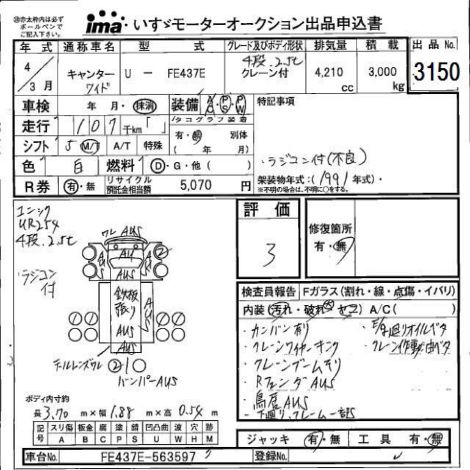 ima いすゞモーターオークション出品申込書
年式 通称車名 型式 グレード及びボディ形状 排気量 積載 出品No.
4/3月 キャンター ワイド U- FE437E 4段 2.5t クレーン付 4,210cc 3,000kg 3150
車検 年・月・抹消 装備 AC PS AB PW 特記事項
走行 107 千km タコグラフ装着 有・無 別体 (年 月)
シフト 5 M/T A/T 特殊
・ラジコン付(不良)
色 白 燃料 D・G・他( )
架装物年式:(1991年式)
※不明の場合は、不明に○をして下さい。
R券 有・無 リサイクル預託金相当額 5,070 円
ユニック
UR254
4段 2.5t
・ラジコン付
評価
3
修復箇所
有・無
ワレ AUS
AUS
鉄板張り
AUS
テールレンズワレ
バンパーAUS
検査員報告 Fガラス(割れ・線・点傷・イバリ)
内装(汚れ・破れ・ヤニ) A/C( )
・カンバン有り
・クレーンワイヤーキンク
・クレーンブームキズ
・RフェンダAUS
・鳥居AUS
・下廻り、フレーム一部S
ボディ内寸約
長3.70m×幅1.88m×高0.54m
A スリ傷 U 凹 B 凸凹 C 腐蝕 P 塗装 S 錆 G 凹凸曲 W 波 Y 穴 X 跡
ジャッキ 有・無 工具 有・無
車台No. FE437E-563597 登録No.